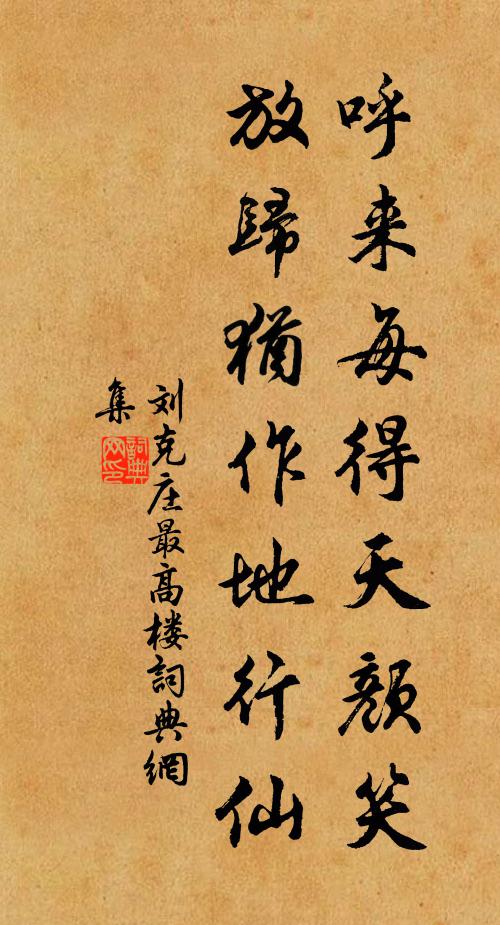 呼来每得天颜笑
放歸猶作地行仙
刘克庄最高楼詞典網
集
詞典网印